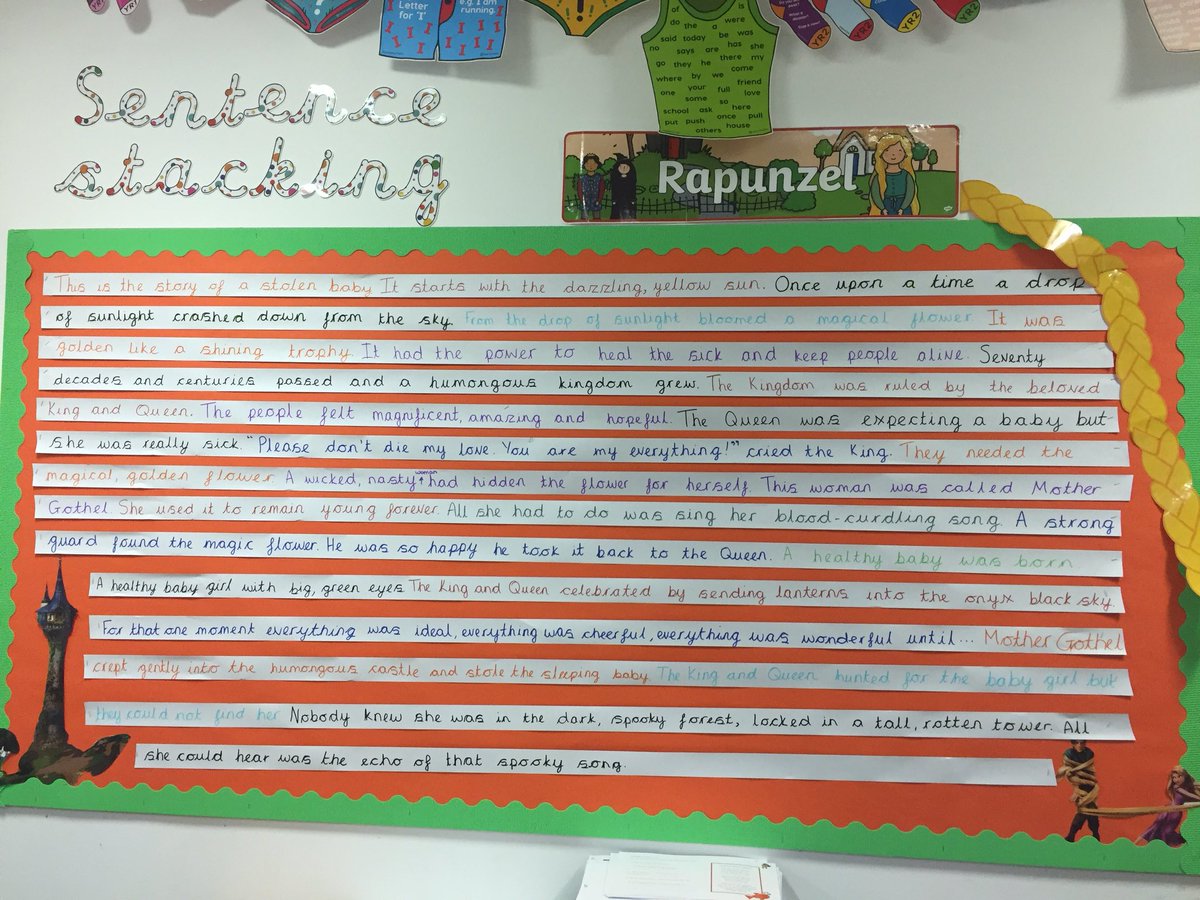 Letter
for 'I'
e.g. I am
running.
YR2
YR2
YR2
YR2
of is
do the a were
said today be was
no says are has she
go they he there my
where by we come
one your full friend
some so love
school ask here
put push once pull
others house
Sentence
stacking
Rapunzel
This is the story of a stolen baby It starts with the dazzling, yellow sun. Once upon a time a drop
of sunlight crashed down from the sky. From the drop of sunlight bloomed a magical flower. It was
golden like a shining trophy. It had the power to heal the sick and keep people alive. Seventy
decades and centuries passed and a humongous kingdom grew. The Kingdom was ruled by the beloved
King and Queen. The people felt magnificent, amazing and hopeful. The Queen was expecting a baby but
she was really sick. "Please don't die my love. You are my everything!" cried the King. They needed the
magical, golden flower. A wicked, nasty woman had hidden the flower for herself. This woman was called Mother
Gothel She used it to remain young forever. All she had to do was sing her blood-curdling song. A strong
guard found the magic flower. He was so happy he took it back to the Queen. A healthy baby was born
A healthy baby girl with big, green eyes The King and Queen celebrated by sending lanterns into the onyx black sky.
For that one moment everything was ideal, everything was cheerful, everything was wonderful until... Mother Gothel
crept gently into the humongous castle and stole the sleeping baby. The King and Queen hunted for the baby girl but
they could not find her Nobody knew she was in the dark, spooky forest, locked in a tall, rotten tower. All
she could hear was the echo of that spooky song.